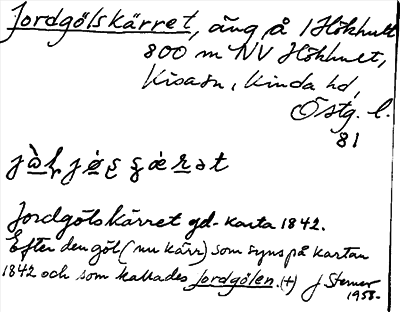 Jordgölskärret, äng å 1 Hökhult
800 m NV Hökhult,
Kisa sn, Kinda hd,
Östg. l.
81
Jordgölskärret gd-karta 1842.
Efter den göl (nu kärr) som syns på kartan
1842 och som kallades Jordgölen. (+) J Sterner
1958.